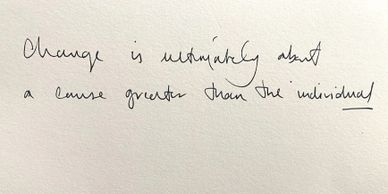 Change is ultimately about
a cause greater than the individual